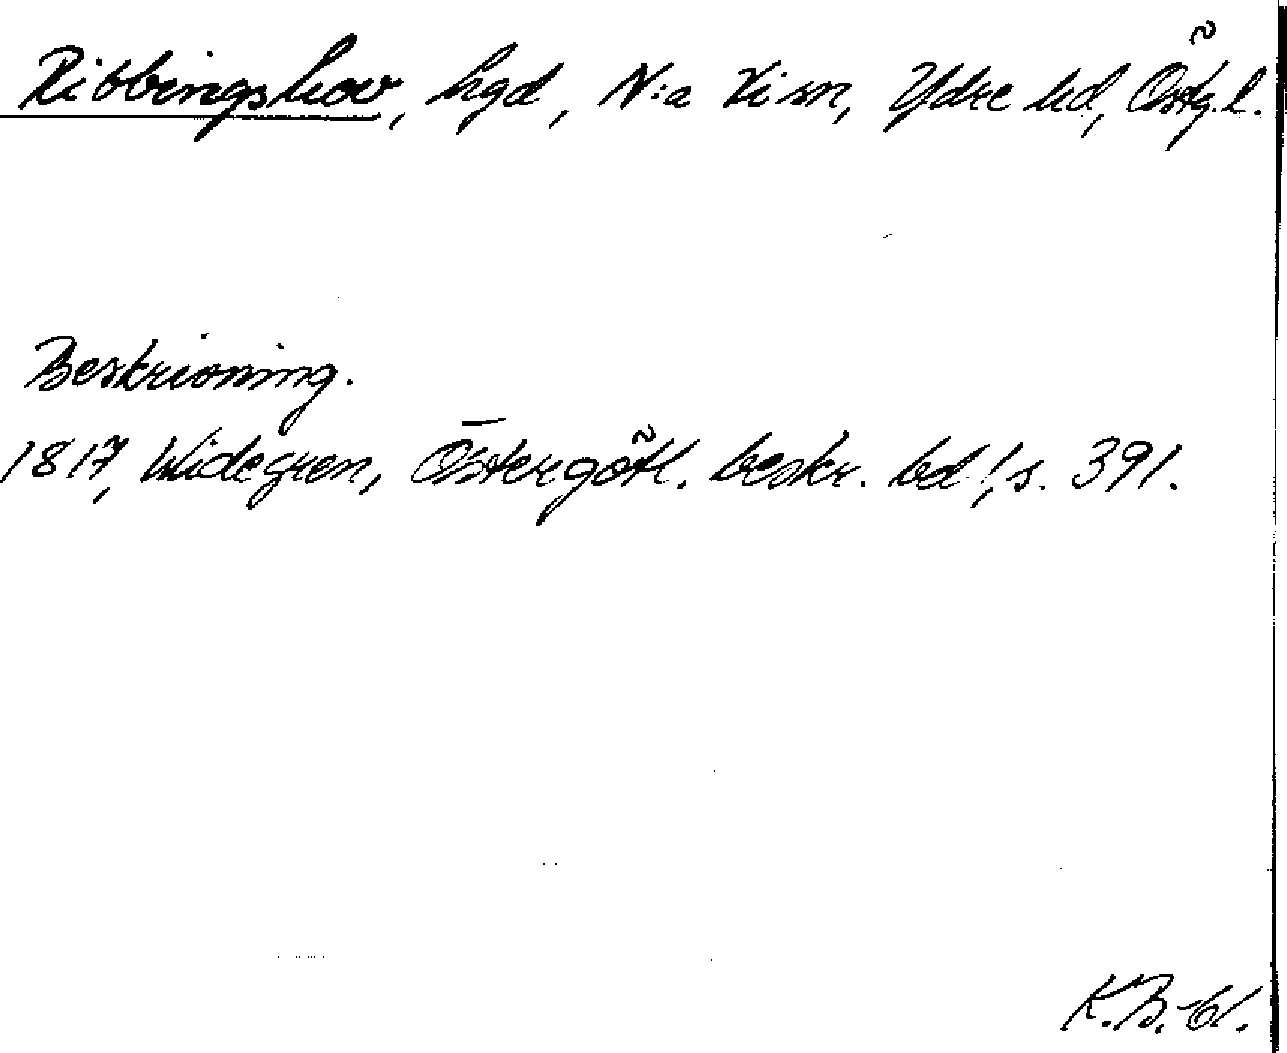 Ribbingshov, hgd, N:a Vi sn, Ydre hd, Östg. l.
Beskrivning.
1817, Widegren, Östergötl. beskr. bd 1, s. 391.
K.B.